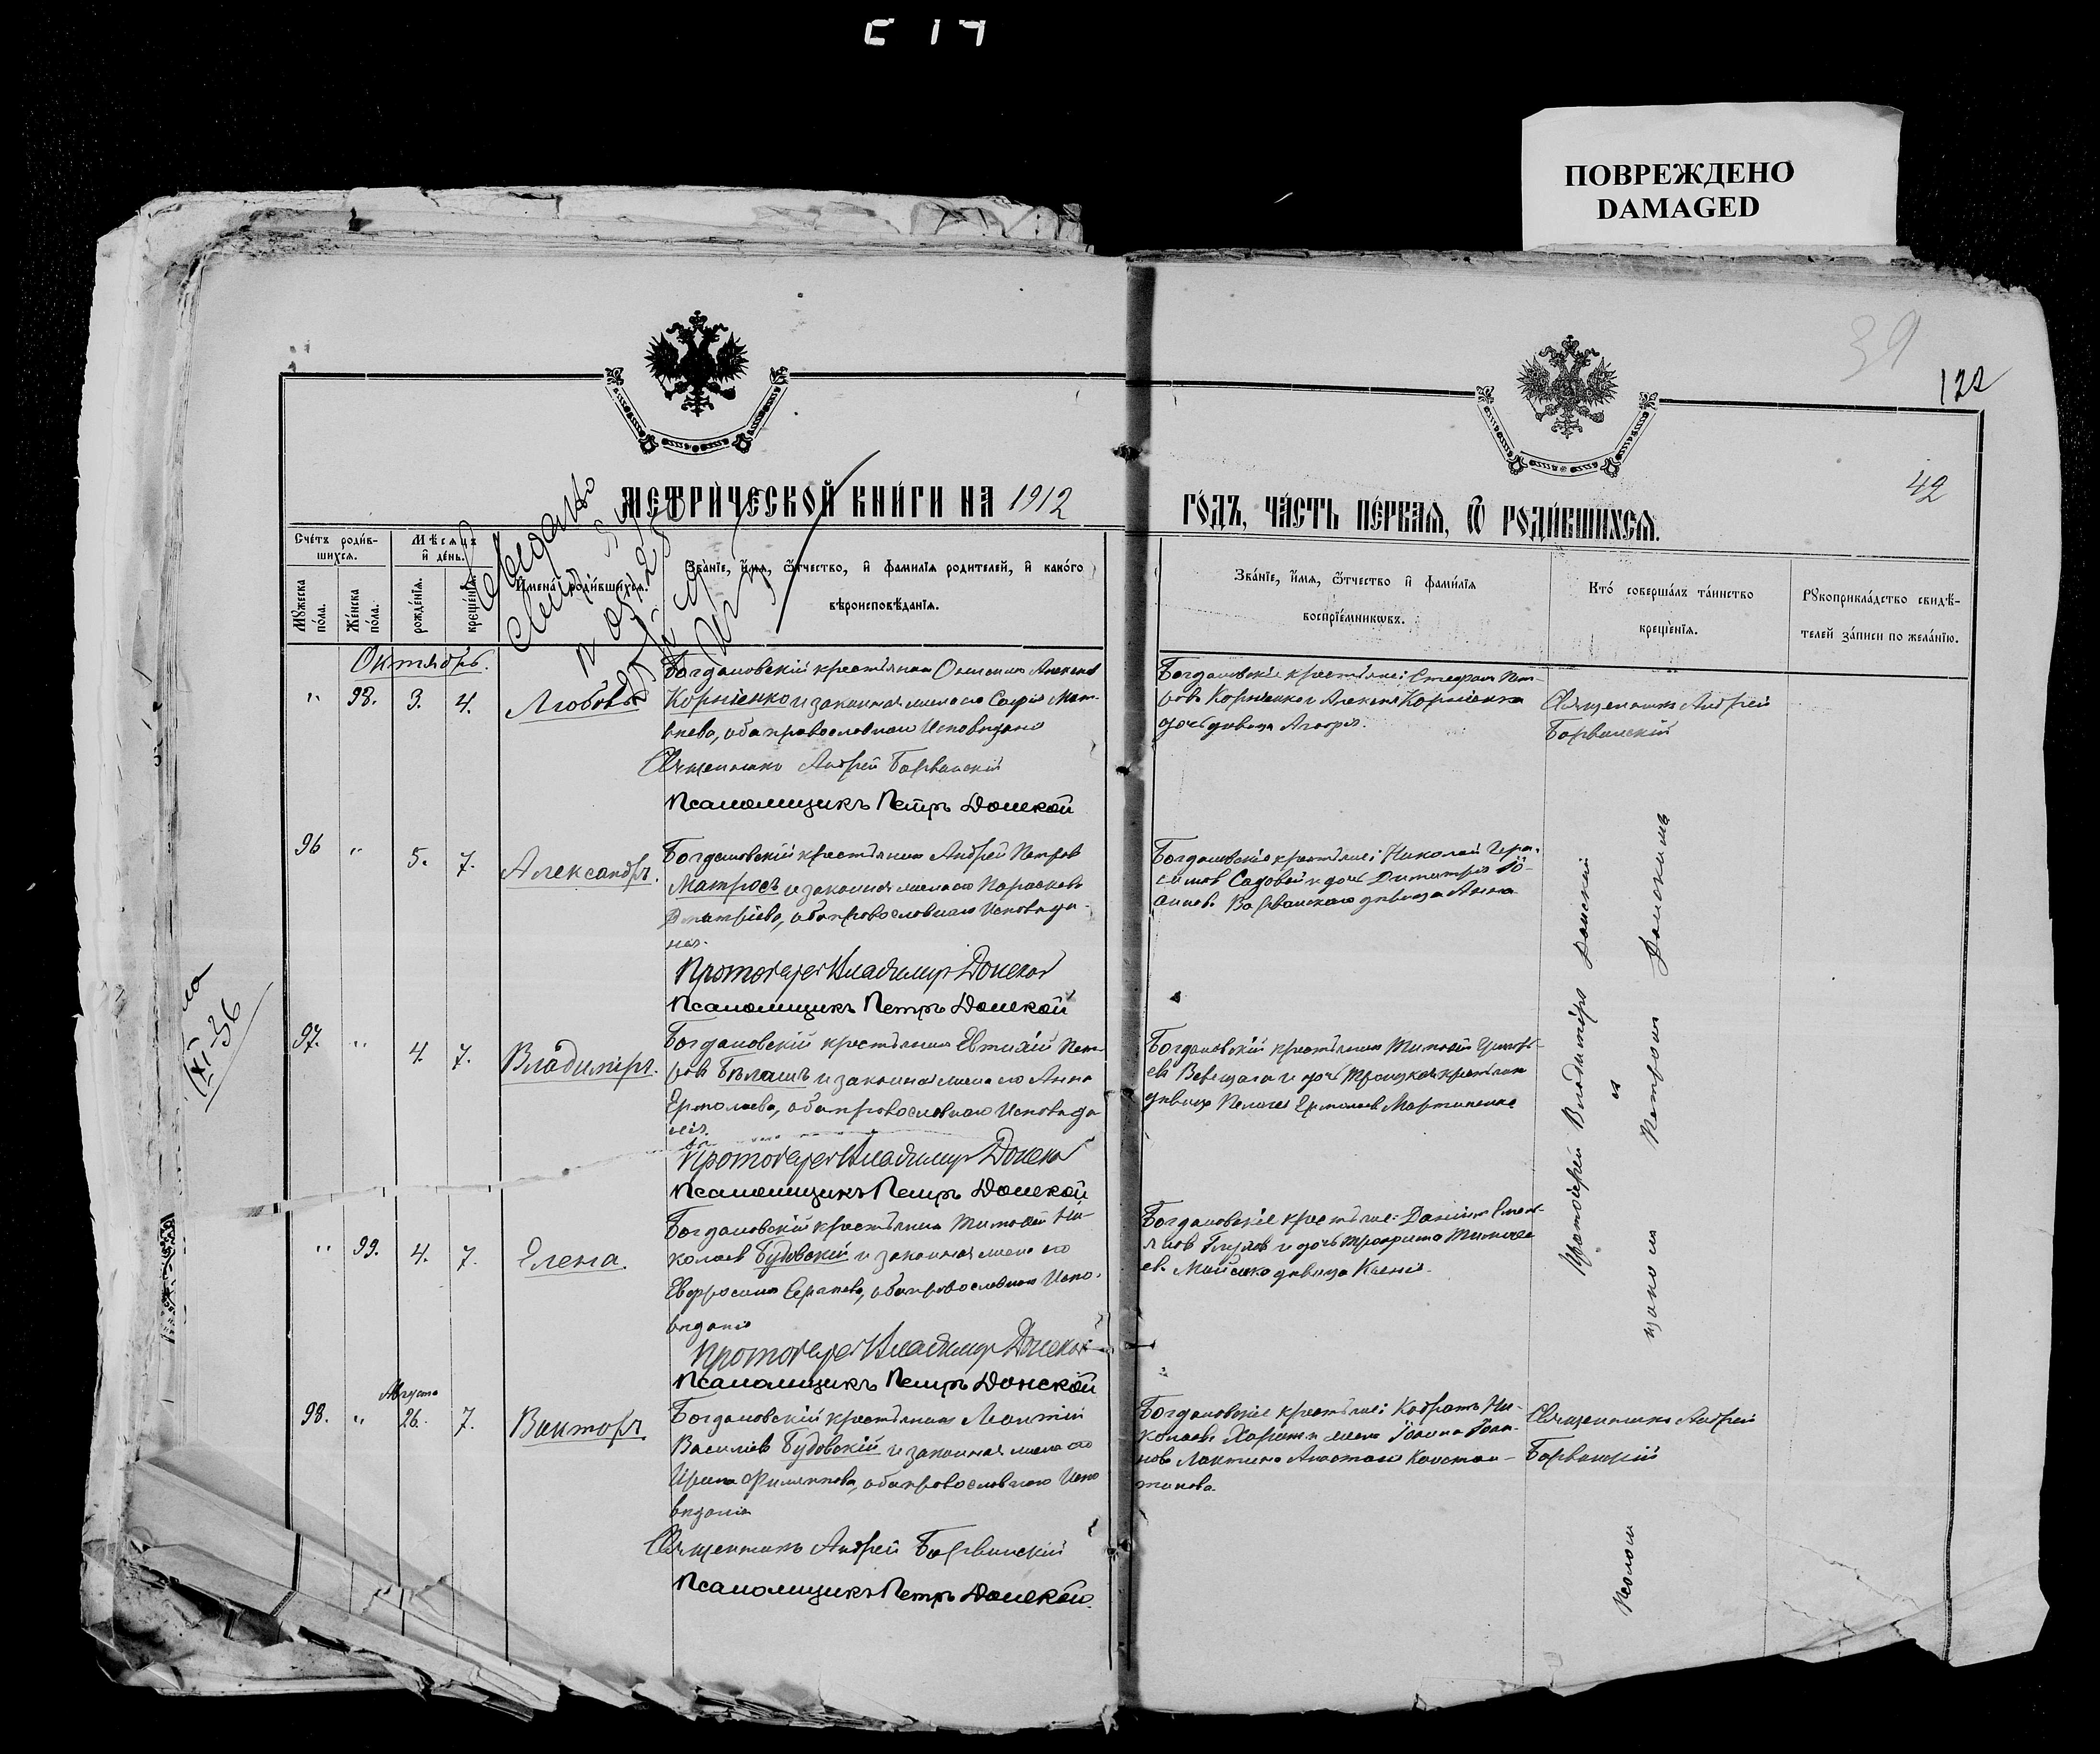 С 14
ПОВРЕЖДЕНО
DAMAGED
39
122
42
МЕТРИ́ЧЕСКОЙ КНИ́ГИ НА 1912
ГО́ДЪ, ЧА́СТЬ ПЕ́РВАЯ, Ѿ РОДИ́ВШИХСЯ.
Сче́тъ роди́в-
шихся.
Мꙋ́жеска
по́ла.
Же́нска
по́ла.
Мѣ́сяцъ
и҆ де́нь.
рожде́нїя.
креще́нїя.
И҆мена̀ роди́вшихся.
Зва́нїе, и҆́мя, ѻ҆́тчество, и҆ фами́лїя роди́телей, и҆ како́го
вѣроисповѣ́данїя.
Зва́нїе, и҆́мя, ѻ҆́тчество и҆ фами́лїя
воспрїе́мникѡвъ.
Кто́ соверша́лъ та́инство
креще́нїя.
Рꙋкоприкла́дство свидѣ́-
телей за́писи по жела́нїю.
Октябрь.
" 98. 3. 4. Любовь
Богдановскій крестьянинъ
Корніенко и законная жена его Софія Мат-
веева, оба православнаго исповеданія
Священникъ Андрей Барвинскій
Псаломщикъ Петръ Донской
Богдановскіе крестьяне: Стефанъ Пет-
ровъ Корніенко и Корніенка
дочь девица
Священникъ Андрей
Барвинскій
96 " 5. 7. Александръ.
Богдановскій крестьянинъ Андрей Петровъ
Матросъ и законная жена его Параскева
Димитріева, оба православнаго исповеда-
нія.
Протоіерей Владимиръ Донской
Псаломщикъ Петръ Донской
Богдановскіе крестьяне: Николай Гера-
симовъ Садовой и дочь Димитрія Іо-
аннов. Барвинскаго девица Анна
97. " 4. 7. Владиміръ.
Богдановскій крестьянинъ Евтихій Пет-
ровъ Белашъ и законная жена его Анна
Ермолаева, оба православнаго исповеда-
нія.
Протоіерей Владимиръ Донской
Псаломщикъ Петръ Донской
Богдановскій крестьянинъ
и дочь крестьян
девица Пелагія Мартиненко
" 99. 4. 7. Елена.
Богдановскій крестьянинъ Тимофей Ни-
колаевъ Будовскій и законная жена его
Евфросинія Сергеева, оба православнаго испо-
веданія
Протоіерей Владимиръ Донской
Псаломщикъ Петръ Донской
Богдановскіе крестьяне: Даніилъ Емель-
яновъ и дочь Трофима
девица Ксенія
Протоіерей Владиміръ Донской
и
Псалом
щикомъ Петромъ Донскимъ
Августа
98. " 26. 7. Викторъ.
Богдановскій крестьянинъ Леонтій
Василіевъ Будовскій и законная жена его
Ирина Филиппова, оба православнаго испо
веданія
Священникъ Андрей Барвинскій
Псаломщикъ Петръ Донской.
Богдановскіе крестьяне: Кодратъ Ни-
колаевъ и жена Іоанна Іоан-
нова Анастасія Констан-
тинова.
Священникъ Андрей
Барвинскій